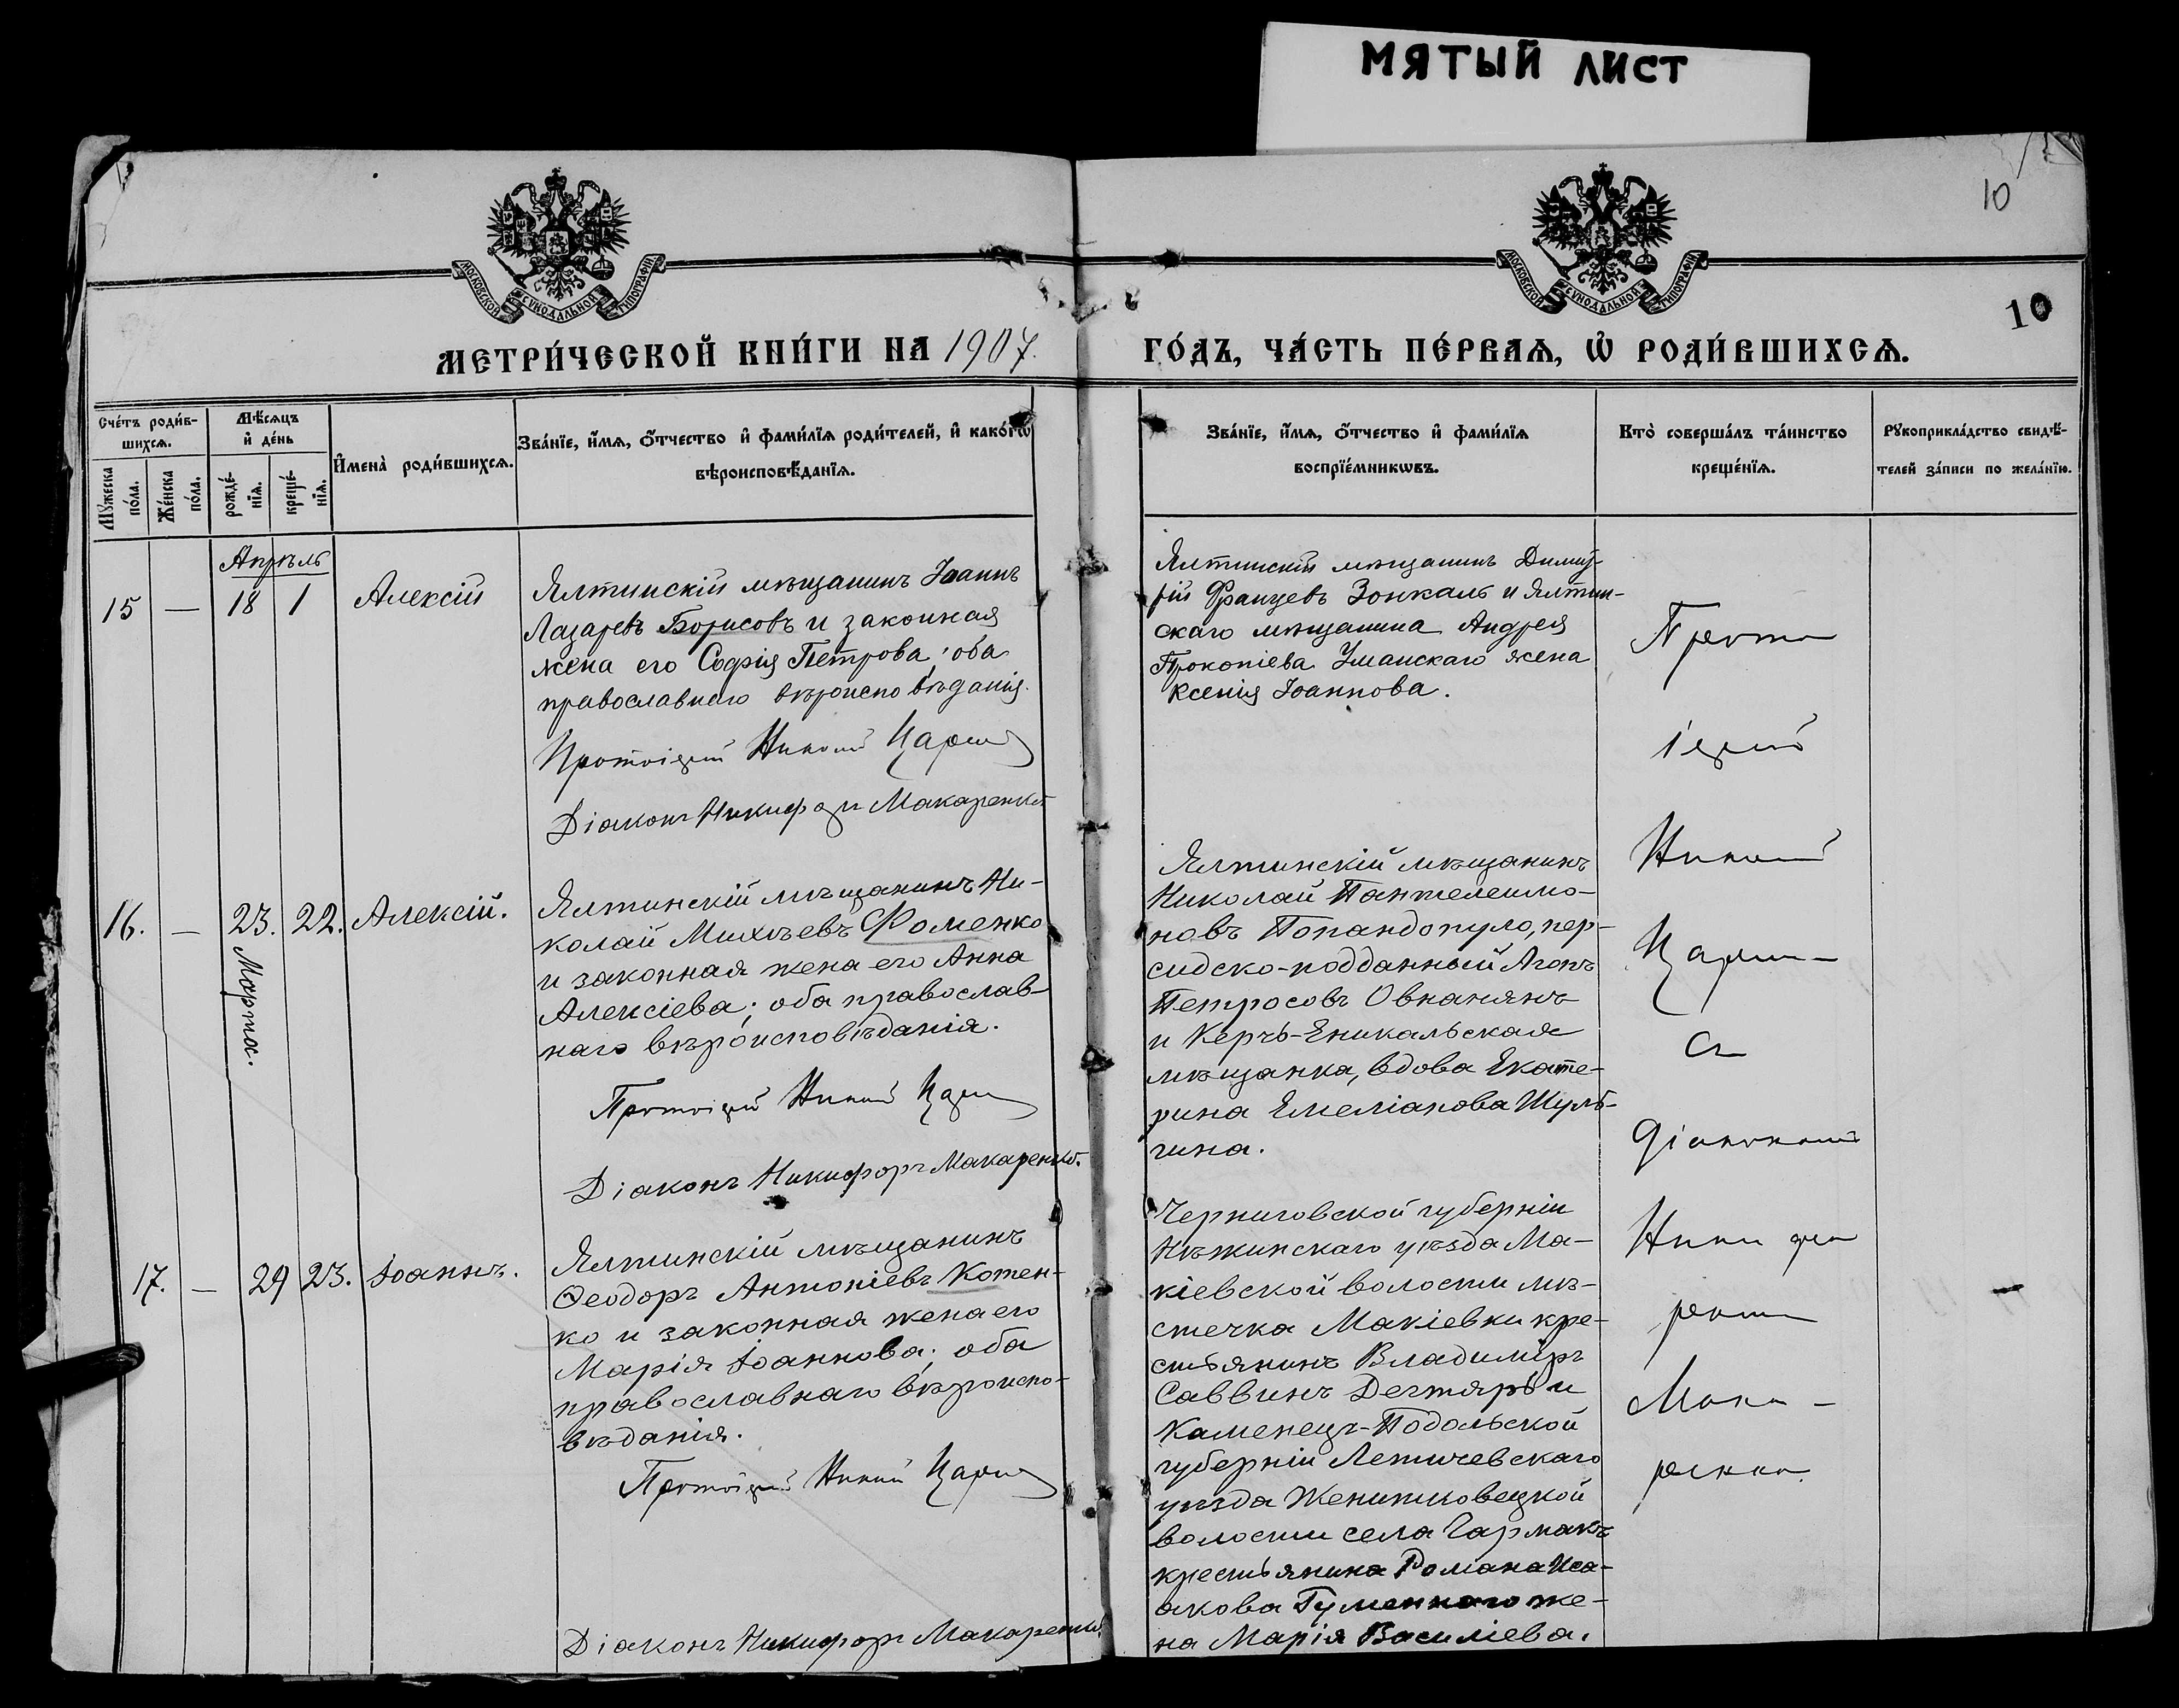 МЯТЫЙ ЛИСТ
10
10
МОСКОВСКОЙ СѴНОДАЛЬНОЙ ТИПОГРАФІИ
МОСКОВСКОЙ СѴНОДАЛЬНОЙ ТИПОГРАФІИ
МЕТРИ́ЧЕСКОЙ КНИ́ГИ НА 1907.
ГО́ДЪ, ЧА́СТЬ ПЕ́РВАѦ, Ѡ҆ РОДИ́ВШИХСѦ.
Сче́тъ роди́в-
шихсѧ.
Мѣ́сяцъ
и҆ де́нь
Мꙋ́жеска
по́ла.
Же́нска
по́ла.
рожде́-
нїѧ.
креще́-
нїѧ.
И҆мена̀ роди́вшихсѧ.
Зва́нїе, и҆́мѧ, ѻ҆́тчество и҆ фами́лїѧ роди́телей, и҆ како́гѡ
вѣроисповѣ́данїѧ.
Зва́нїе, и҆́мѧ, ѻ҆́тчество и҆ фами́лїѧ
воспрїе́мникѡвъ.
Кто̀ соверша́лъ та́инство
креще́нїѧ.
Рꙋкоприкла́дство свидѣ́-
телей за́писи по жела́нїю.
Апрѣль
15 — 18 1 Алексій
Ялтинскій мѣщанинъ Іоаннъ
Лазаревъ Борисовъ и законная
жена его Софія Петрова; оба
православнаго вѣроисповѣданія.
Протоіерей
Діаконъ Никифоръ Макаренко.
Ялтинскій мѣщанинъ Димит-
рій Францевъ Зонкаль и Ялтин-
скаго мѣщанина Андрея
Прокопіева Уманскаго жена
Ксенія Іоаннова.
16. — 23. 22. Алексій.
Марта.
Ялтинскій мѣщанинъ Ни-
колай Михѣевъ Фоменко
и законная жена его Анна
Алексіева; оба православ-
наго вѣроисповѣданія.
Протоіерей
Діаконъ Никифоръ Макаренко.
Ялтинскій мѣщанинъ
Николай Пантелеимо-
новъ Попандопуло, пер-
сидско-подданный Агопъ
Петросовъ Овнанянъ
и Керчь-Еникальская
мѣщанка, вдова Екате-
рина Емеліанова Шуль-
гина.
17. — 29 23. Іоаннъ.
Ѳеодоръ Антоніевъ Котен-
Ялтинскій мѣщанинъ
ко и законная жена его
Марія Іоаннова; оба
православнаго вѣроиспо-
вѣданія.
Протоіерей
Діаконъ Никифоръ Макаренко.
Черниговской губерніи
Нѣжинскаго уѣзда Ма-
кіевской волости мѣ-
стечка Макіевки кре-
стьянинъ Владиміръ
Саввинъ Дегтярь и
Каменецъ-Подольской
губерніи Летичевскаго
уѣзда Женишковецкой
волости села Гармакъ
крестьянина Романа Иса-
акова Гуменнаго же-
на Марія Василіева.
Прото
іерей
съ
діакономъ
Ники фо
ромъ
Мака-
ренко.